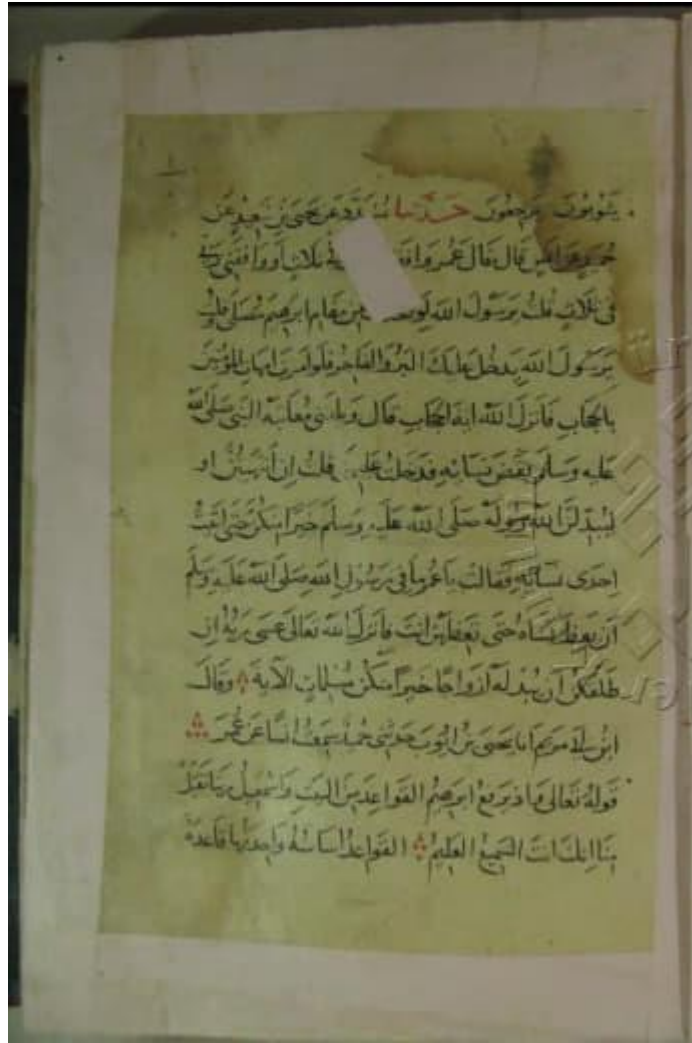 يثوبون يرجعون حدثنا مسدد عن يحيى بن سعيد عن
حميد عن انس قال قال عمر وافقت في ثلاث او وافقني ربي
في ثلاث قلت يرسول الله لو من مقام ابرهيم مصلى وقلت
يرسول الله يدخل عليك البر والفاجر فلو امرت امهات المؤمنين
بالحجاب فانزل الله اية الحجاب قال وبلغني معاتبة النبي صلى الله
عليه وسلم بعض نسائه فدخلت عليهن قلت ان انتهيتن او
ليبدلن الله رسوله صلى الله عليه وسلم خيرا منكن حتى اتيت
احدى نسائه فقالت ياعمر ما في رسول الله صلى الله عليه وسلم
ان يعظ نساه حتى تعظهن انت فانزل الله تعالى عسى ربه ان
طلقكن ان يبدله ازواجا خيرا منكن مسلمات الآية وقال
ابن ابي مريم انا يحيى بن ايوب حدثني حميد سمعت انسا عن عمر
قوله تعالى واذ يرفع ابرهيم القواعد من البيت واسمعيل ربنا تقبل
منا انك انت السميع العليم القواعد اساسه واحدتها قاعدة